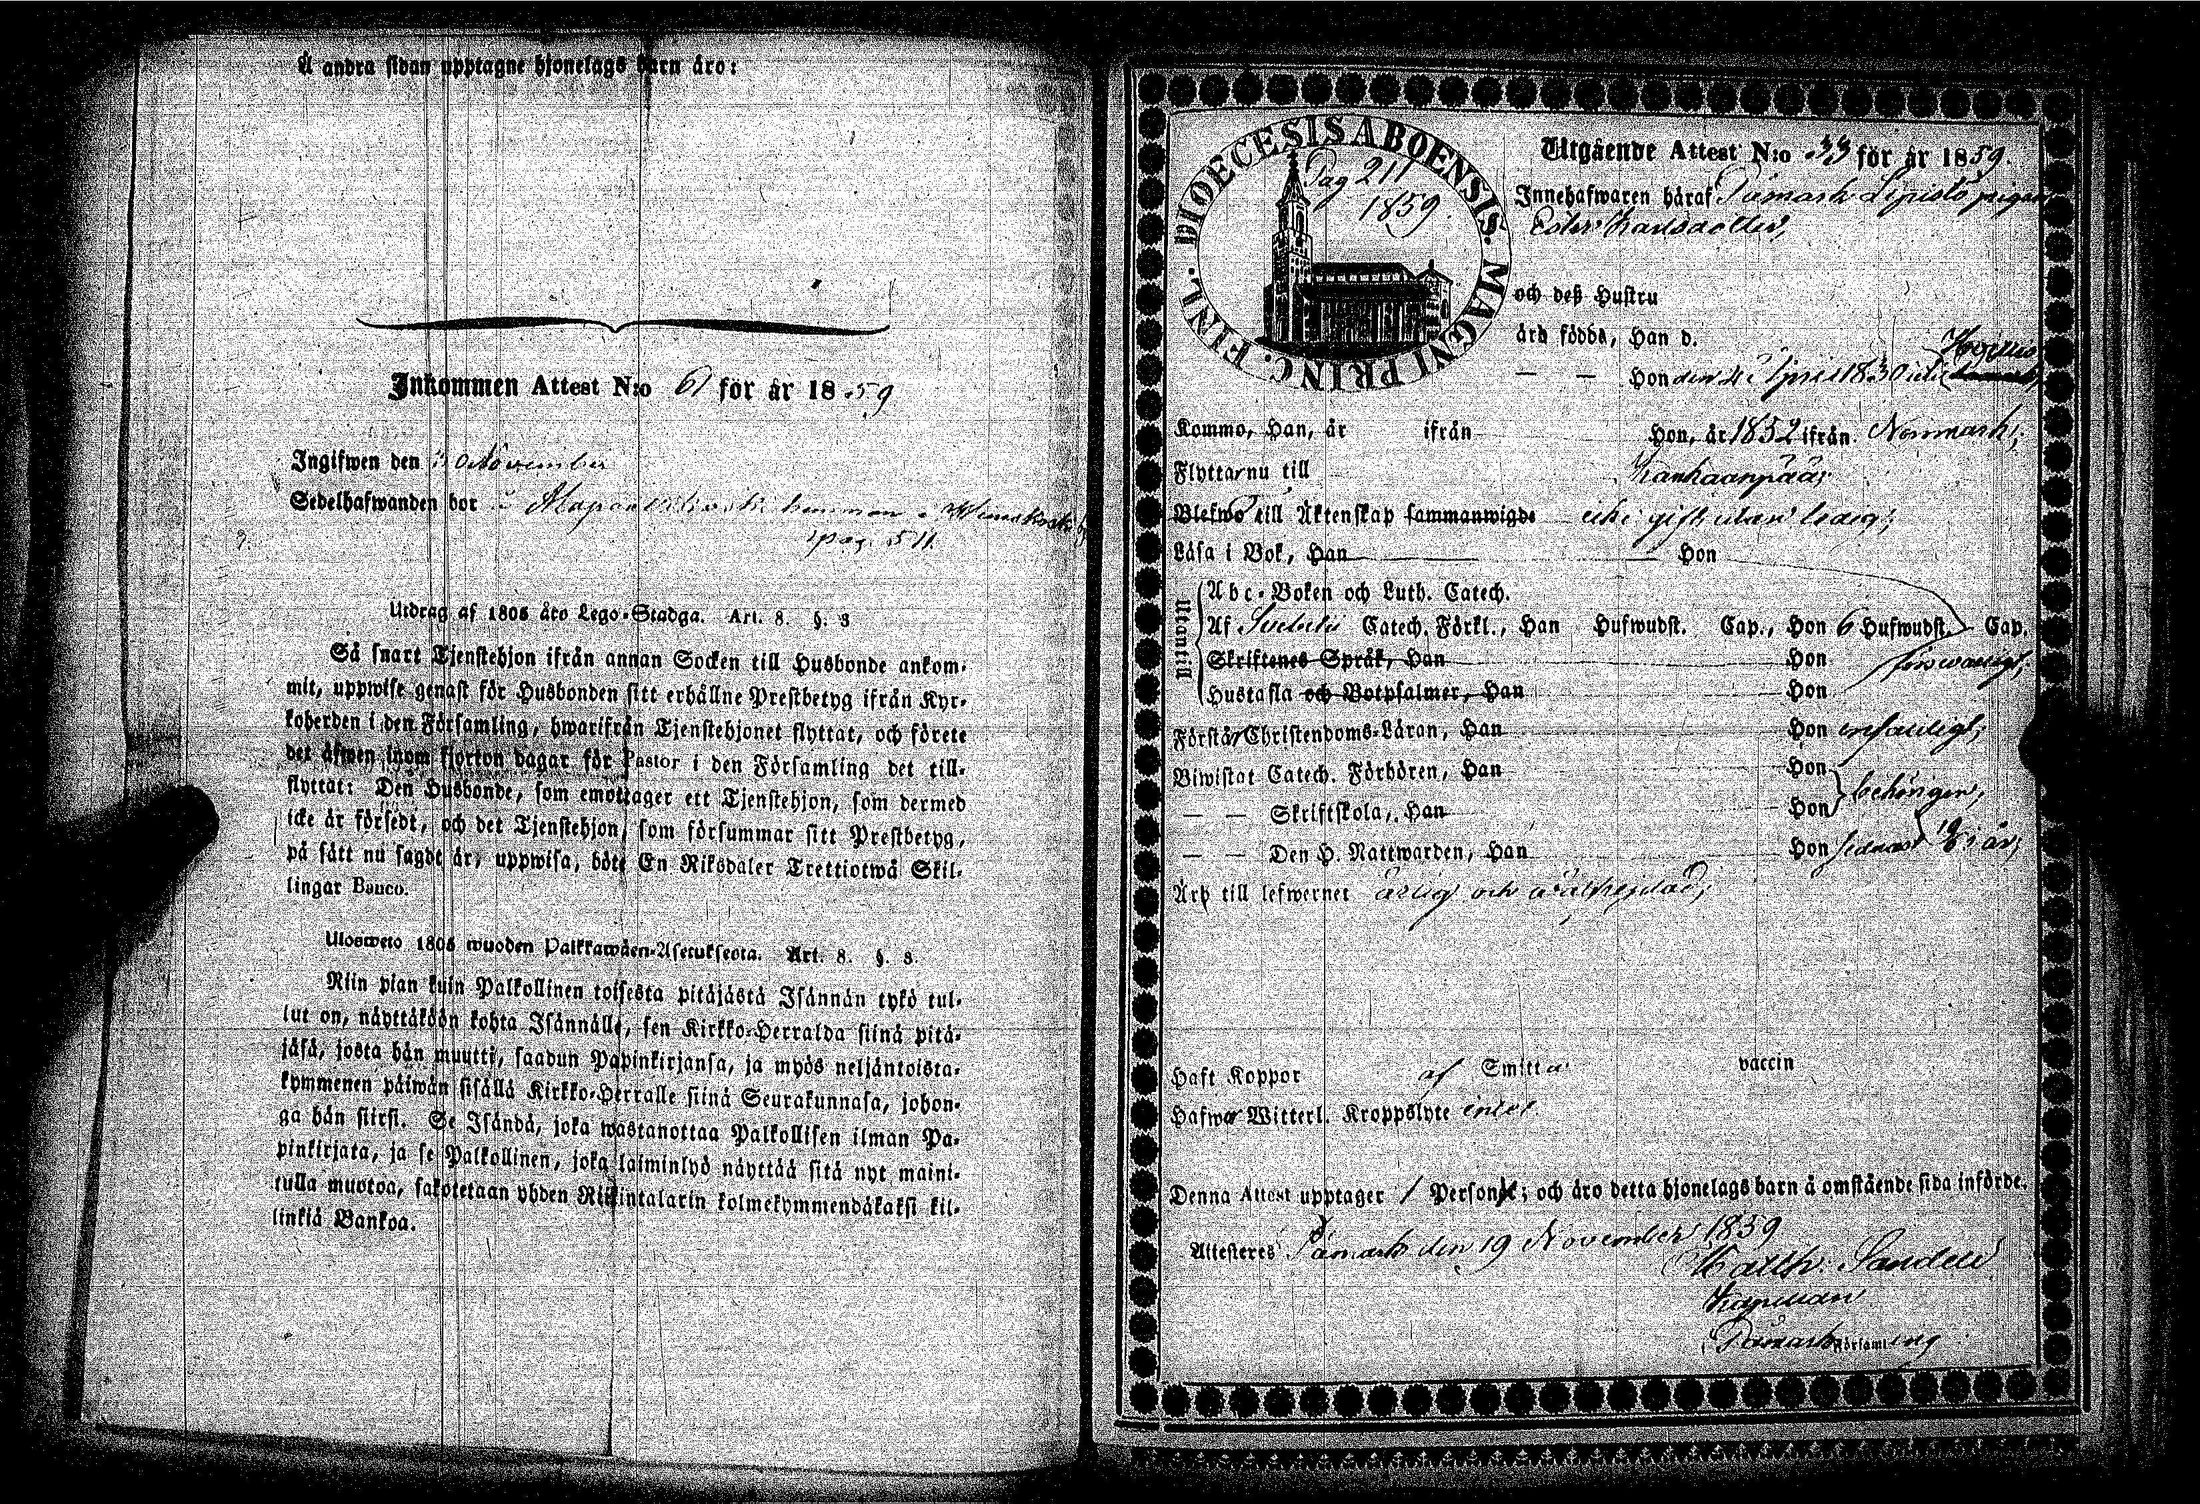 Å andra sidan upptagne hjonelags barn äro:
Inkommen Attest N:o 61 för år 1859
Ingifwen den November
Sedelhafwanden bor i hemman
pag. 511.
Utdrag af 1805 års Lego-Stadga. Art. 8. §. 3
Så snart Tjenstehjon ifrån annan Socken till Husbonde ankom-
mit, uppwise genast för Husbonden sitt erhållne Prestbetyg ifrån Kyr-
koherden i den Församling, hwarifrån Tjenstehjonet flyttat, och förete
det äfwen inom fjorton dagar för Pastor i den Församling det till-
flyttat: Den Husbonde, som emottager ett Tjenstehjon, som dermed
icke är försedt, och det Tjenstehjon, som försummar sitt Prestbetyg,
på sätt nu sagdt är, uppwisa, böte En Riksdaler Trettiotwå Skil-
lingar Banco.
Ulosweto 1805 wuoden Palkkawäen-Asetuksesta. Art. 8. §. 3.
Niin pian kuin Palkollinen toisesta pitäjästä Isännän tykö tul-
lut on, näyttäköön kohta Isännälle, sen Kirkko-Herralda siinä pitä-
jäsä, josta hän muutti, saadun Papinkirjansa, ja myös neljäntoista-
kymmenen päiwän sisällä Kirkko-Herralle siinä Seurakunnasa, johon-
ga hän siirsi. Se Isändä, joka wastanottaa Palkollisen ilman Pa-
pinkirjata, ja se Palkollinen, joka laiminlyö näyttää sitä nyt maini-
tulla muotoa, sakotetaan yhden Riikintalarin kolmekymmendäkaksi kil-
linkiä Bankoa.
DIOECESIS ABOENSIS. MAGNI PRINC. FINL.
Pag 211
1859.
Utgående Attest N:o 33 för år 1859.
Innehafwaren häraf Påmark Lepistö pigan
Ester Karlsdotter,
och deß Hustru
äro födda, Han d.
— — Hon den 4 April 1830
Kommo, Han, år ifrån Hon, år 1852 ifrån Norrmark,
Flyttar nu till Kankaanpää;
Blefwo till Äktenskap sammanwigde icke gift utan ledig;
Läsa i Bok, Han Hon
Utantill
Abc-Boken och Luth. Catech.
Af Svebelii Catech. Förkl., Han Hufwudst. Cap., Hon 6 Hufwudst. Cap.
Skriftenes Språk, Han Hon försvarligt;
Hustafla och Botpsalmer, Han Hon
Förstår Christendoms-Läran, Han Hon enfaldigt;
Biwistat Catech. Förhören, Han Hon
behörigen;
— — Skriftskola, Han Hon
— — Den H. Nattwarden, Han Hon sednast i år;
Är till lefwernet ärlig och wälfrejdad;
Haft Koppor af Smitta vaccin
Hafwer Witterl. Kroppslyte intet
Denna Attest upptager 1 Person; och äro detta hjonelags barn å omstående sida införde.
Attesteres Påmark den 19 November 1859
Matth. Sandell
Kapellan
Påmark Församling